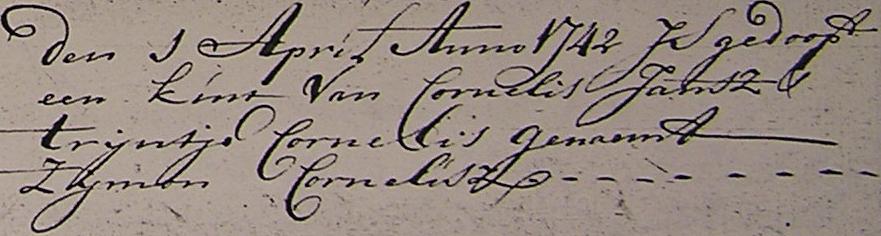 Den 1 April Anno 1742 Is gedoopt
een kint Van Cornelis Jansz &
trijntje Cornelis genaemt
Zijmon Cornelisz